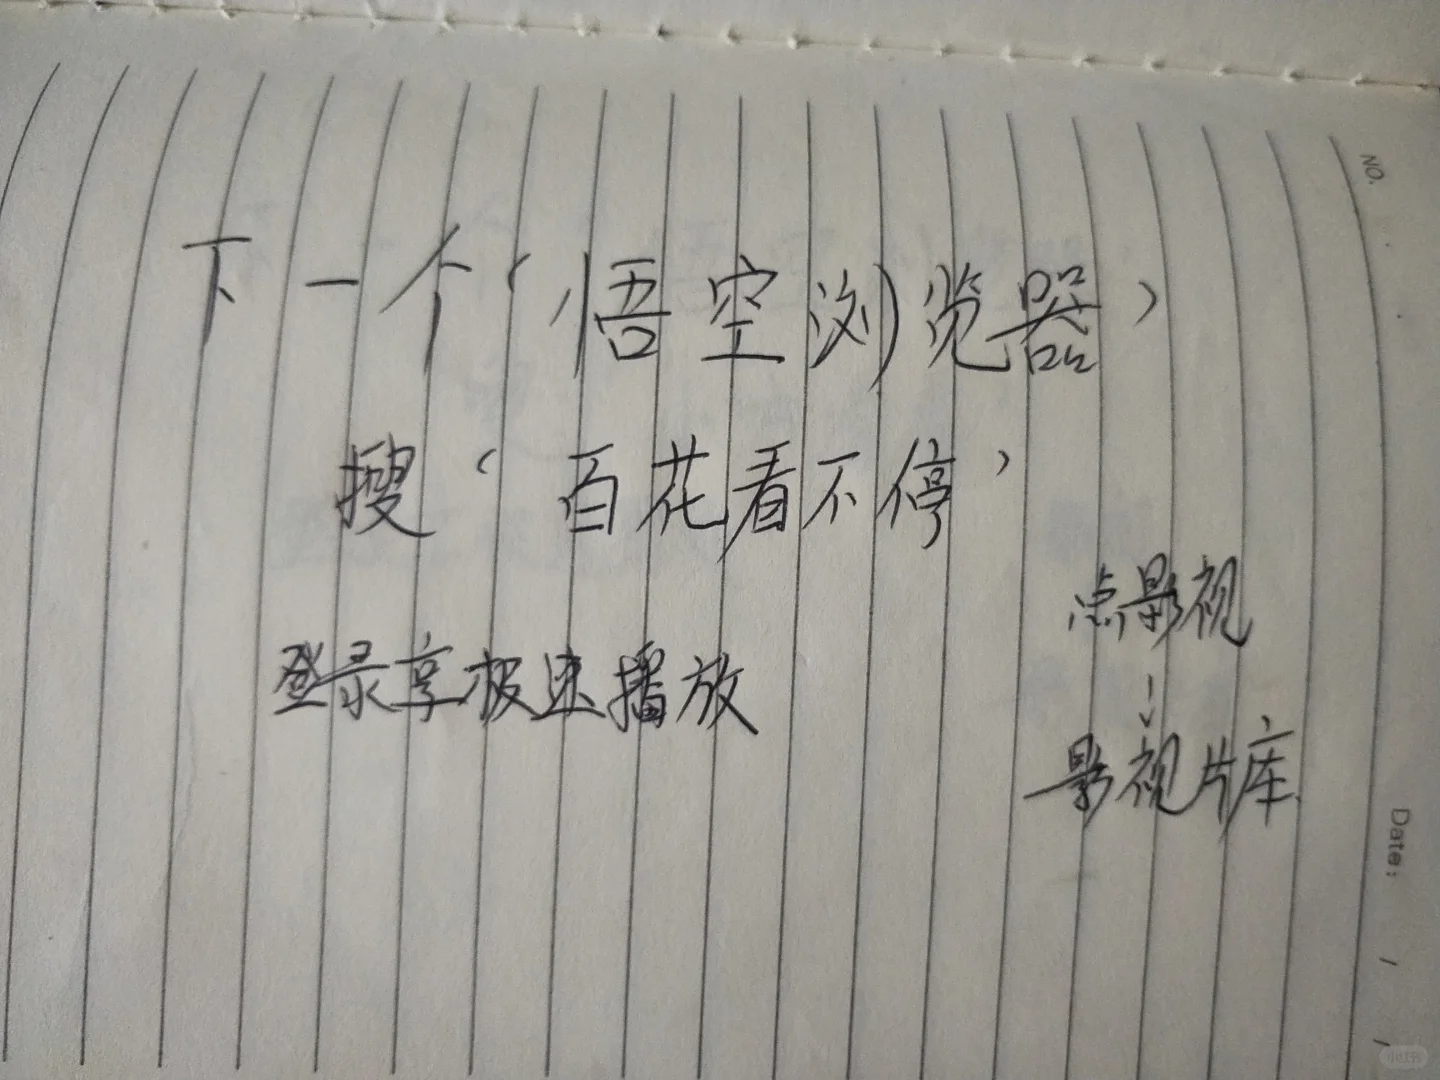 NO.
下一个‘悟空浏览器’
搜‘百花看不停’
点影视
登录享极速播放
影视片库
Date: / /
小红书